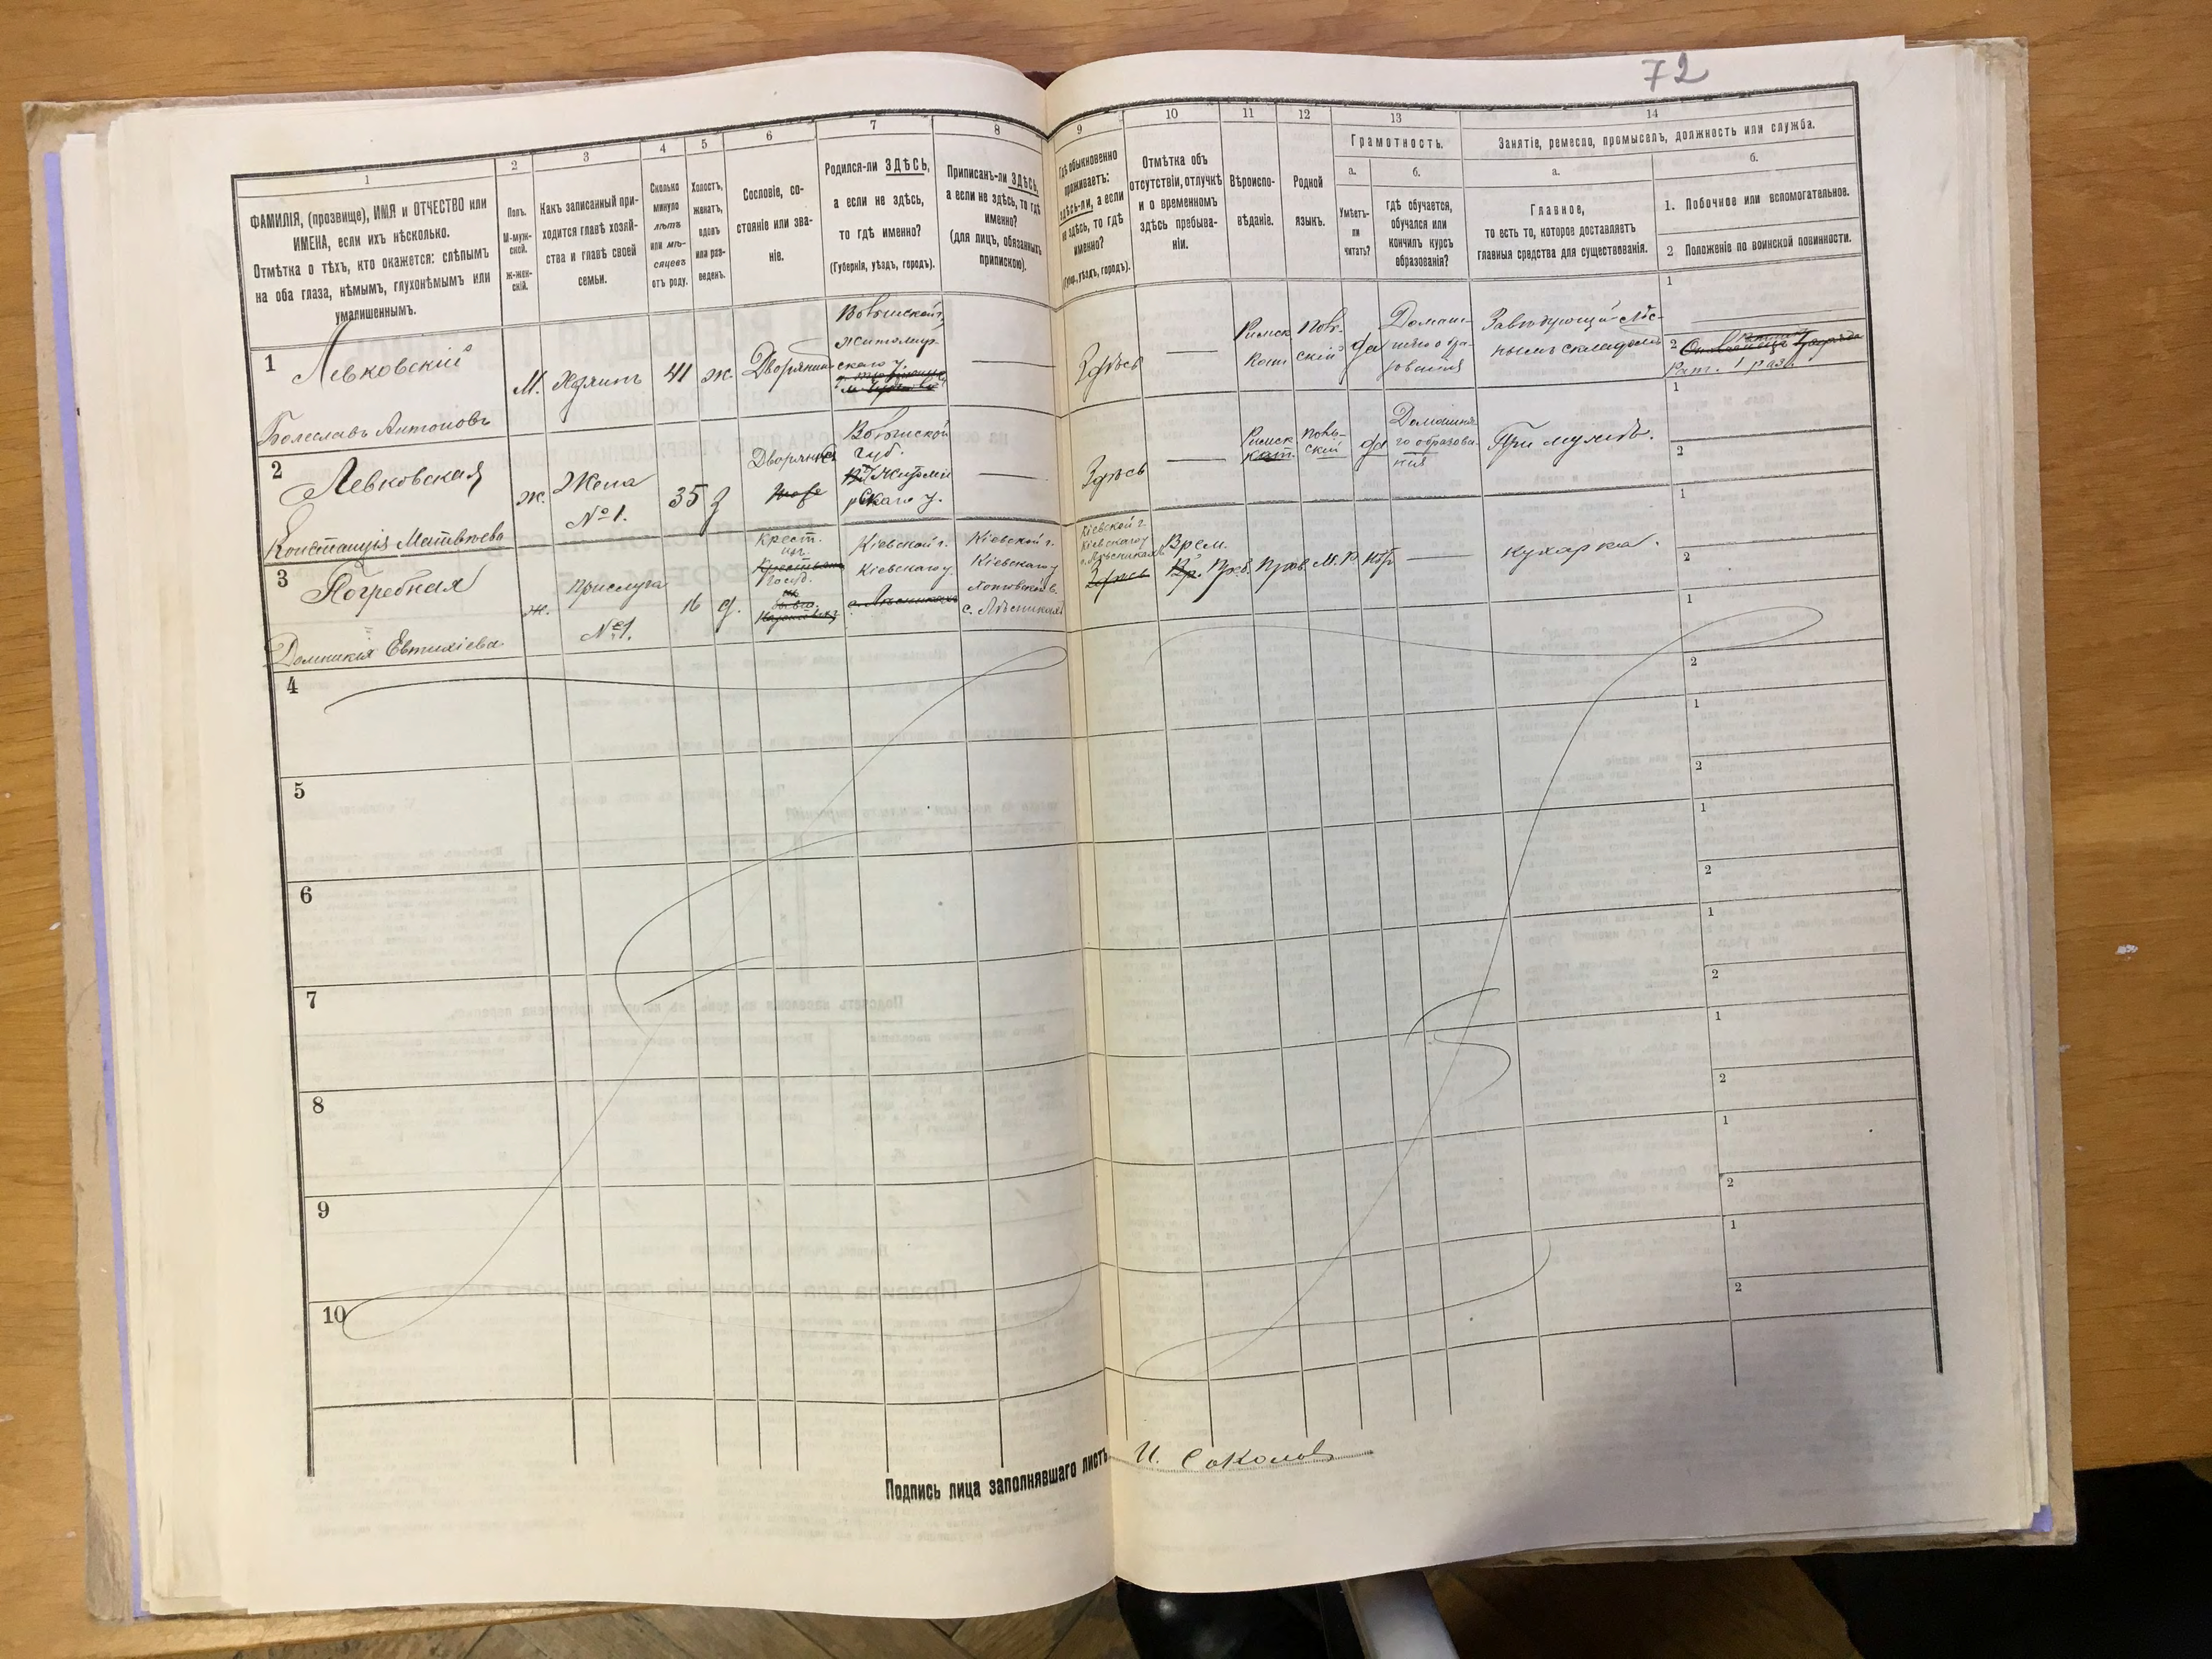 72
1
2
3
4
5
6
7
8
9
10
11
12
13
14
ФАМИЛІЯ, (прозвище), ИМЯ и ОТЧЕСТВО или
ИМЕНА, если ихъ нѣсколько.
Отмѣтка о тѣхъ, кто окажется: слѣпымъ
на оба глаза, нѣмымъ, глухонѣмымъ или
умалишеннымъ.
Полъ.
М-муж-
ской.
Ж-жен-
скій.
Какъ записанный при-
ходится главѣ хозяй-
ства и главѣ своей
семьи.
Сколько
минуло
лѣтъ
или мѣ-
сяцевъ
отъ роду.
Холостъ,
женатъ,
вдовъ
или раз-
веденъ.
Сословіе, со-
стояніе или зва-
ніе.
Родился-ли ЗДѢСЬ,
а если не здѣсь,
то гдѣ именно?
(Губернія, уѣздъ, городъ).
Приписанъ-ли ЗДѢСЬ,
а если не здѣсь, то гдѣ
именно?
(для лицъ, обязанныхъ
припискою).
Гдѣ обыкновенно
проживаетъ:
здѣсь-ли, а если
не здѣсь, то гдѣ
именно?
(Губ., уѣздъ, городъ).
Отмѣтка объ
отсутствіи, отлучкѣ
и о временномъ
здѣсь пребыва-
ніи.
Вѣроиспо-
вѣданіе.
Родной
языкъ.
Грамотность.
а.
Умѣетъ-
ли
читать?
б.
гдѣ обучается,
обучался или
кончилъ курсъ
образованія?
Занятіе, ремесло, промыселъ, должность или служба.
а.
Главное,
то есть то, которое доставляетъ
главныя средства для существованія.
б.
1. Побочное или вспомогательное.
2 Положеніе по воинской повинности.
1
Левковскій
Болеславъ Антоновъ
М.
Хозяинъ
41
ж.
Дворянинъ
Волынской г.
житомир-
скаго у.
Здѣсь
Римск
Кат
Поль-
скій
да
Домаш-
няго обра-
зованія
Завѣдующій Лѣс-
нымъ складомъ
1
2
Рат. 1 раз.
2
Левковская
Констанція Матвѣева
ж.
Жена
№ 1.
35
з
Дворянка
Волынской
губ.
Житоми
рскаго у.
Здѣсь
Римск
кат.
Поль-
скій
да
Домашня
го образова-
нія
При мужѣ.
1
2
3
Погребная
Домникія Евтихіева
ж.
Прислуга
№ 1.
16
д.
Крест.
Кіевской г.
Кіевскаго у
Кіевской г.
Кіевскаго у
с. Лѣсникахъ
Кіевской г.
Кіевскаго у
с. Лѣсникахъ
Здѣсь
Врем.
Вр. Преб.
Прав.
М. Р.
нѣт
кухарка.
1
2
4
1
2
5
1
2
6
1
2
7
1
2
8
1
2
9
1
2
10
1
2
Подпись лица заполнявшаго листъ И. Соколовъ